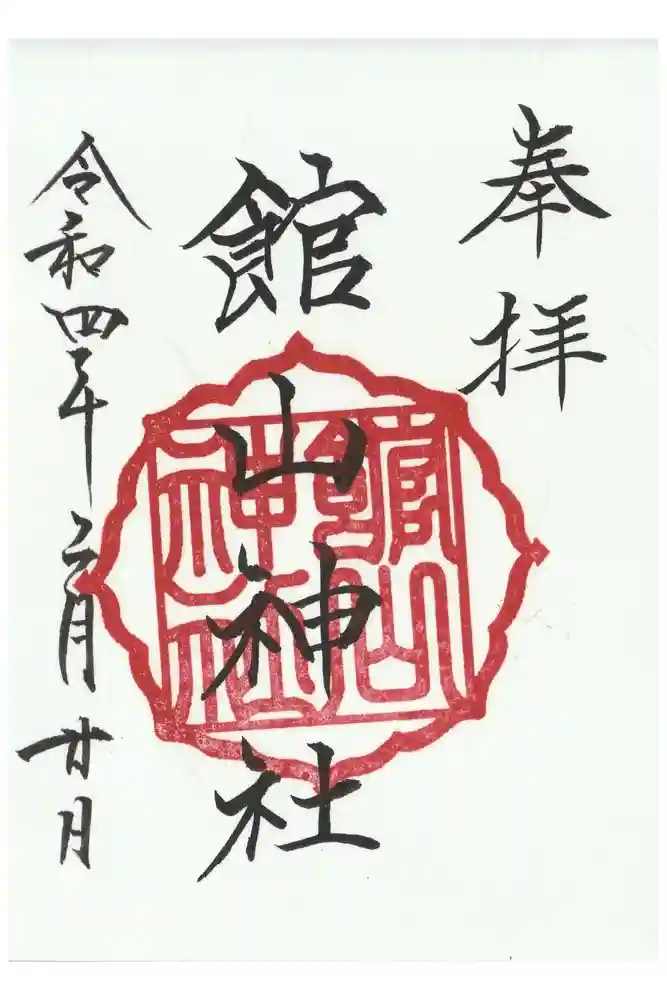 奉拝
館山神社
令和四年二月廿日
館山
神社